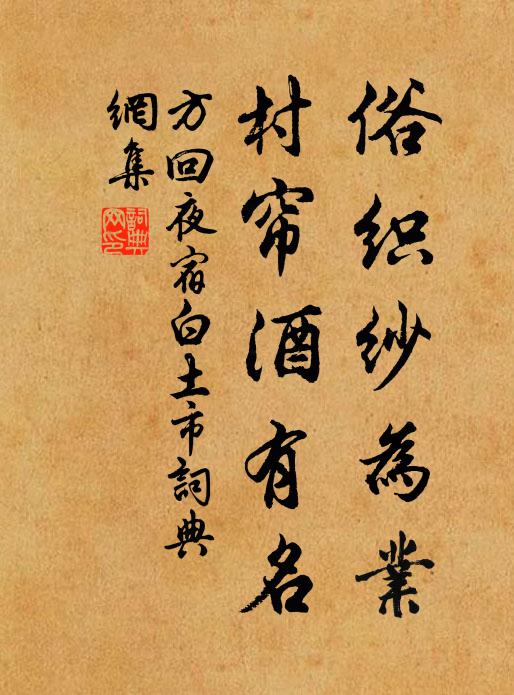 俗织纱為業
村帘酒有名
方回夜宿白土市詞典
網集
詞典
网印